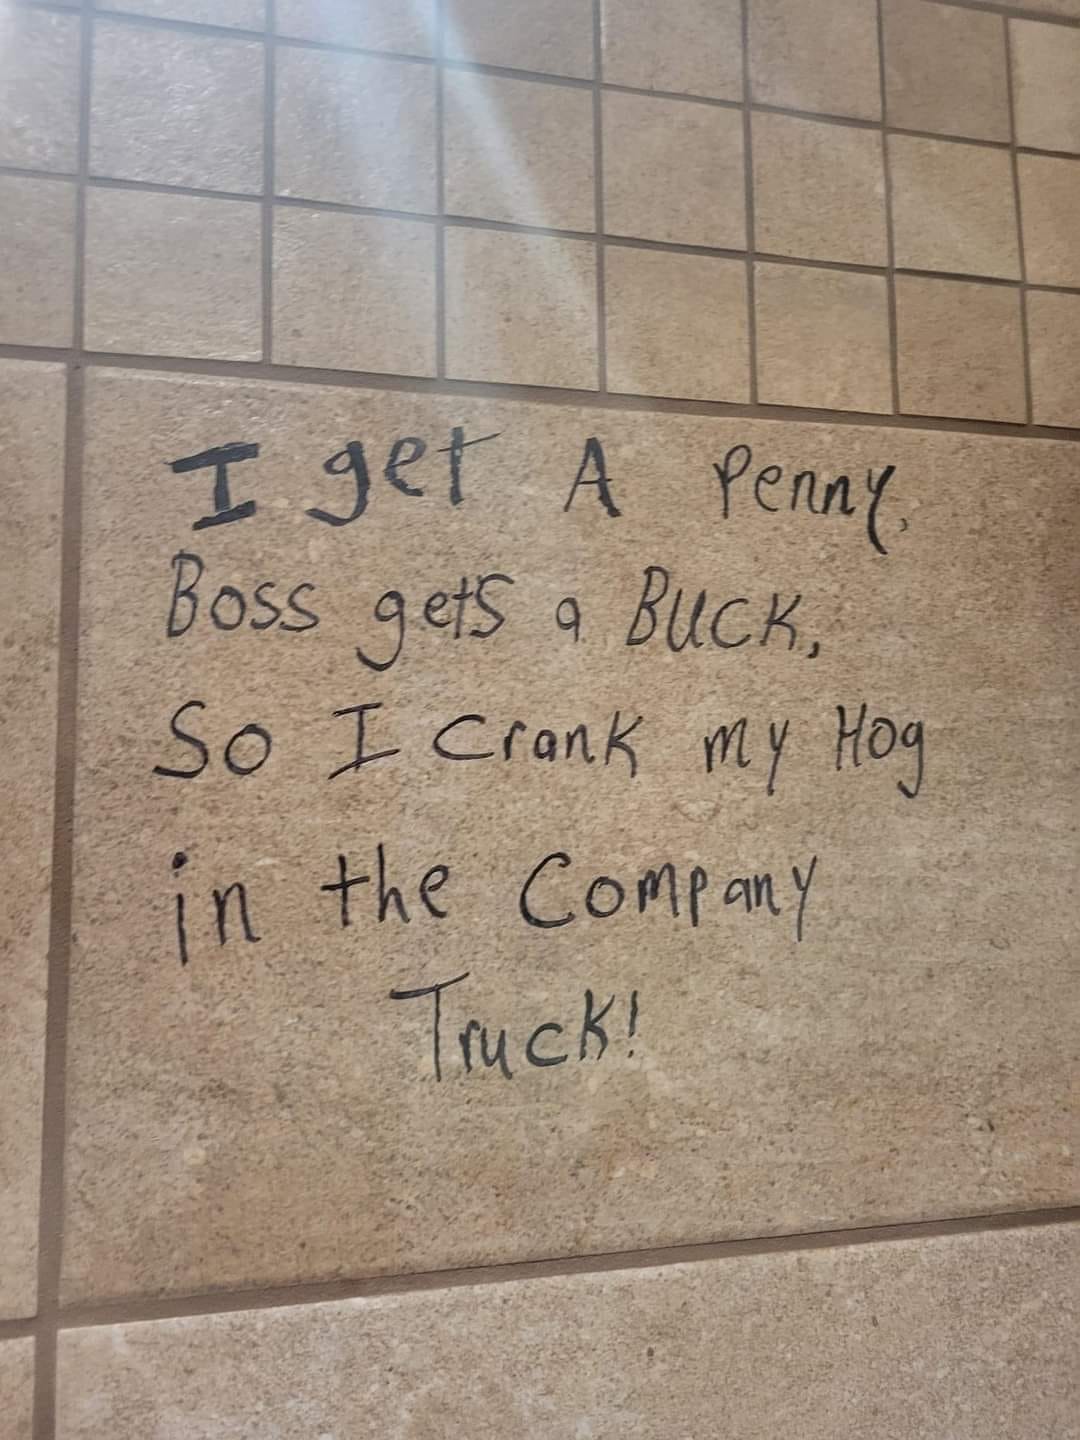 I get A Penny,
Boss gets a Buck,
So I Crank my Hog
in the Company
Truck!